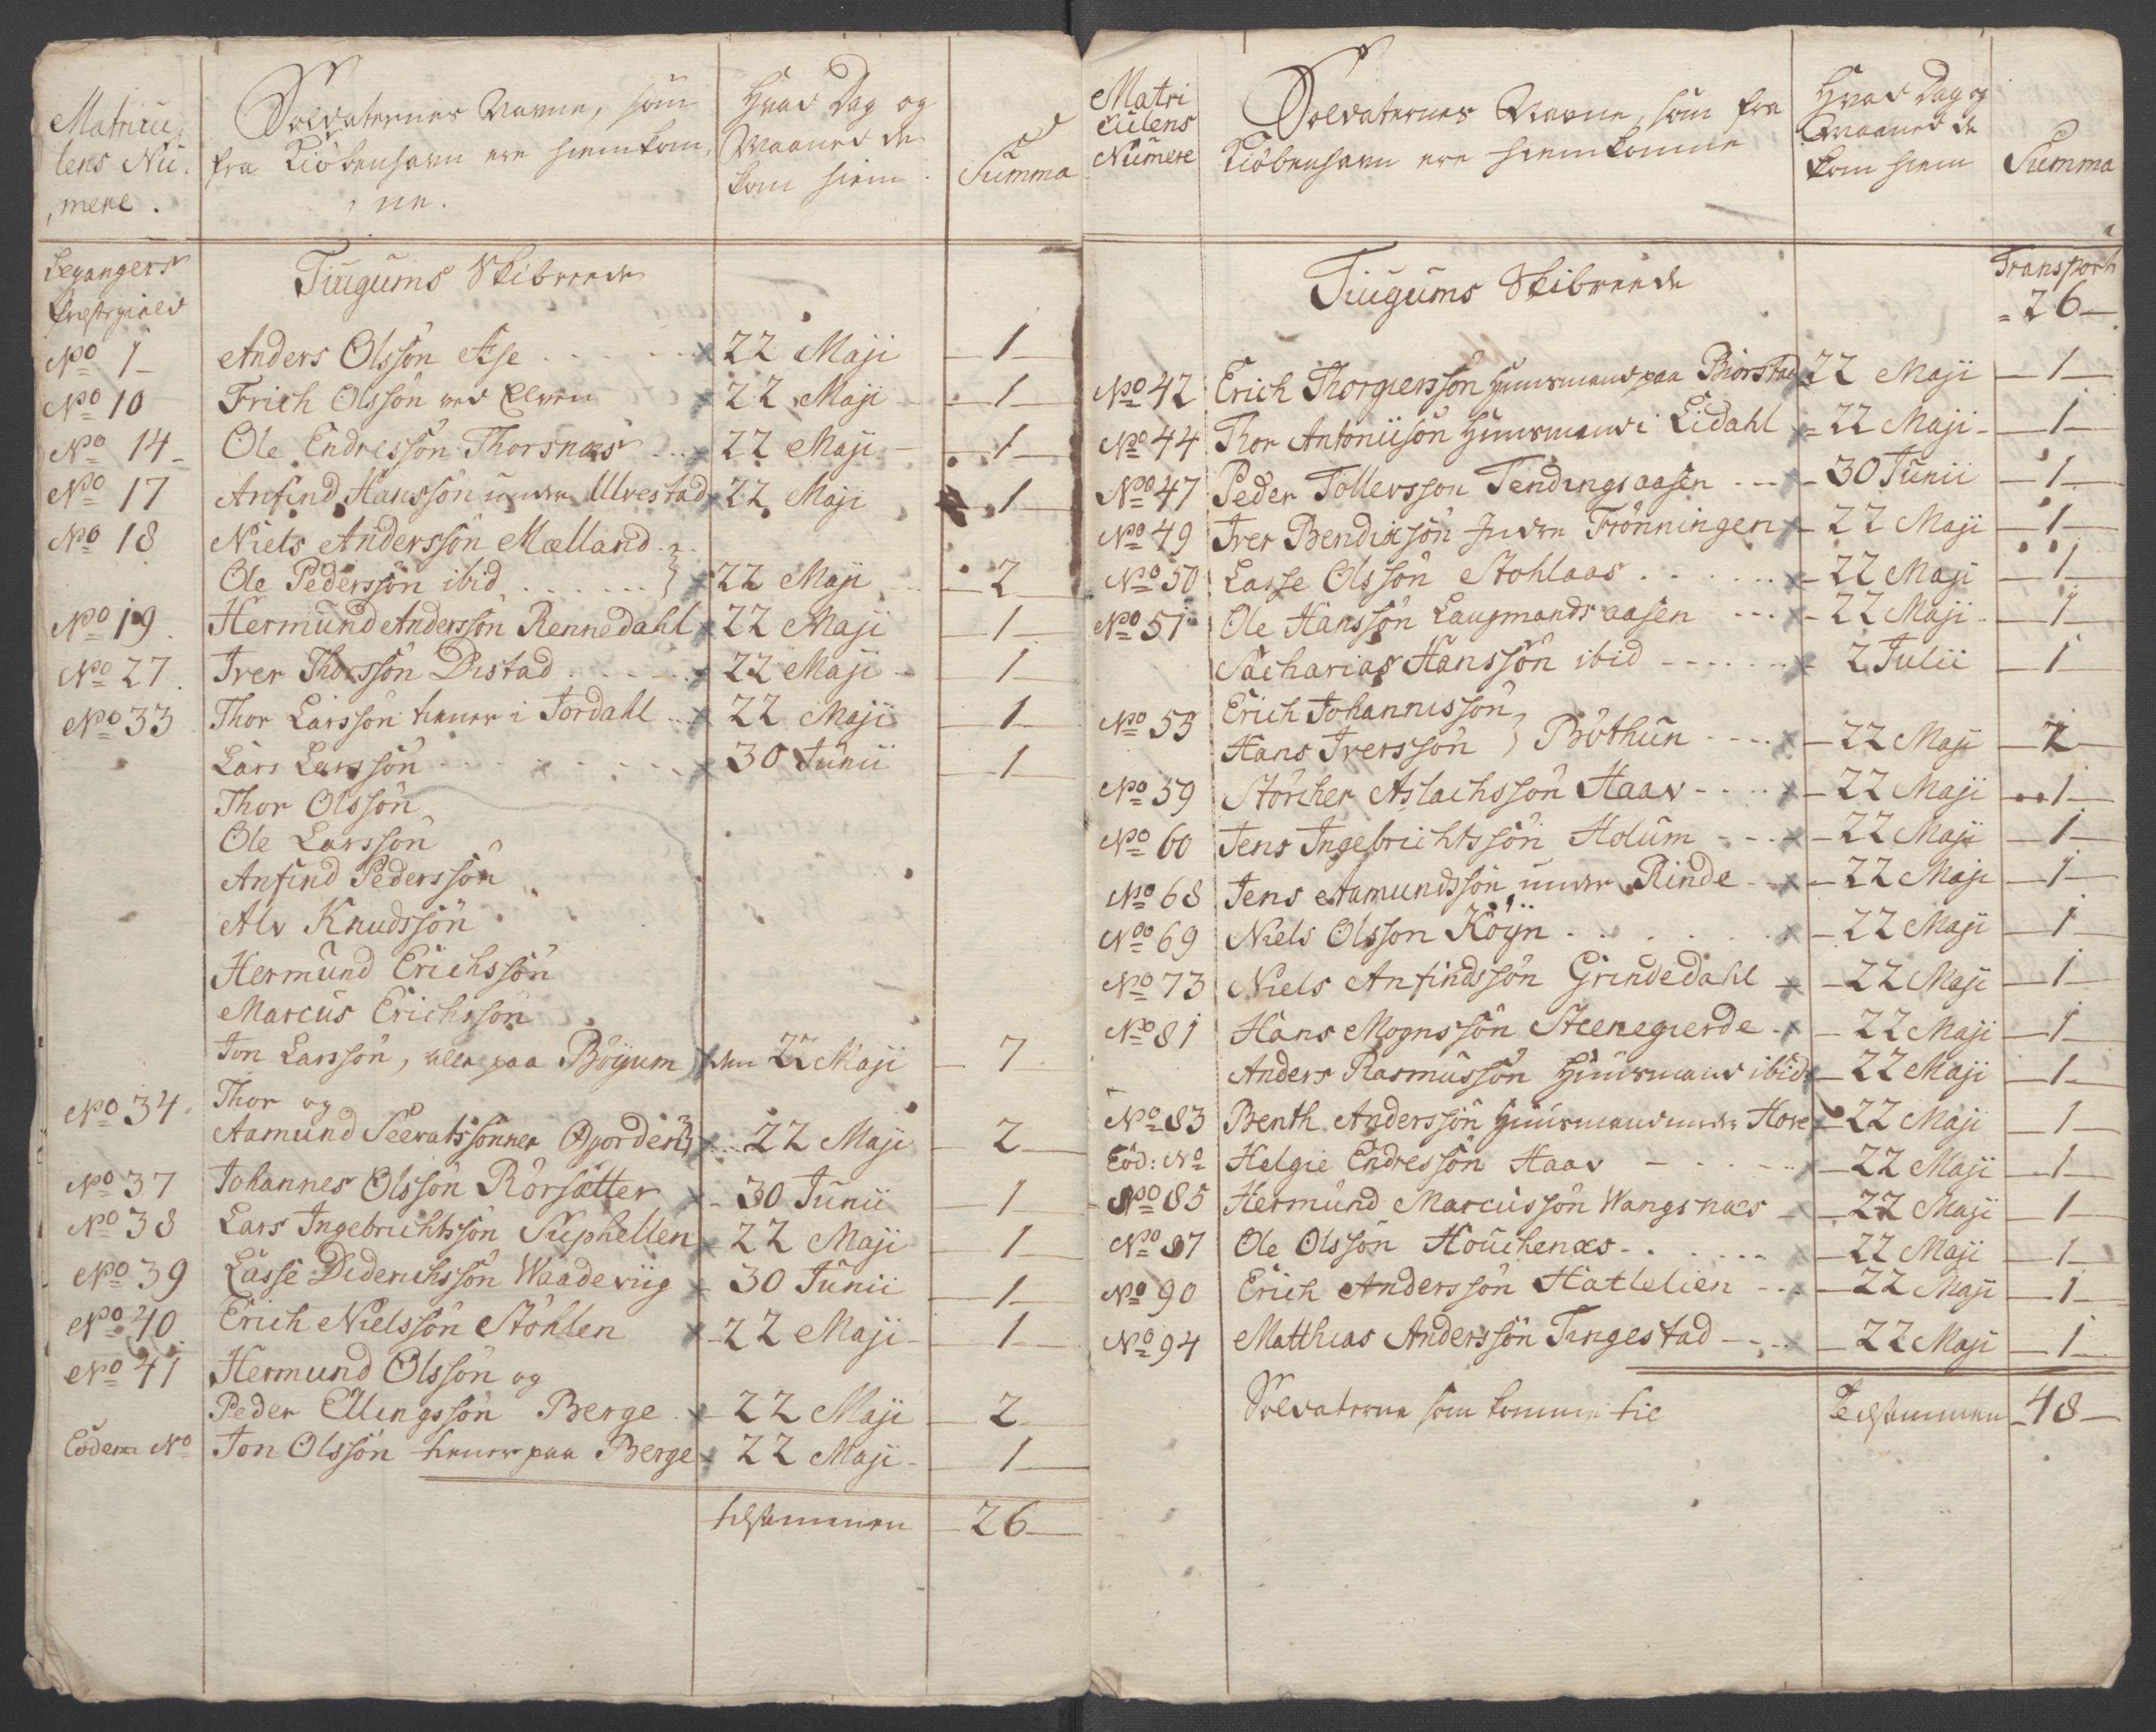 Matricu,
lens Nu,
,mere.
Soldaternes Navne, som
fra Kiöbenhavn ere hiemkom,
,ne.
Hvad Dag og
Maaned de
kom hiem.
Summa
Leganger
Præstegield
Tiugums Skibreede
No 1 Anders Olssön Ese 22 Maji 1
No 10 Erich Olssön ved Elven 22 Maji 1
No 14 Ole Endressön Thorsnæs 22 Maji 1
No 17 Anfind Hanssön under Ulvestad 22 Maji 1
No 18 Niels Anderssön Mælland
Ole Pederssön ibid 22 Maji 2
No 19 Hermund Anderssön Rennedahl 22 Maji 1
No 27 Iver Thorssön Distad 22 Maji 1
No 33 Thor Larssön tiener i Jordahl 22 Maji 1
Lars Larssön 30 Junii 1
Thor Olssön
Ole Larssön
Anfind Pederssön
Alv Knudssön
Hermund Erichssön
Marcus Erichssön
Jon Larssön, alle paa Böyum den 22 Maji 7
No 34 Thor og
Aamund Seevatssönner 22 Maji 2
No 37 Johannes Olssön Rörsätter 30 Junii 1
No 38 Lars Ingebrichtssön Suphellen 22 Maji 1
No 39 Lasse Diderichssön Waadeviig 30 Junii 1
No 40 Erich Nielssön Stöhlen 22 Maji 1
No 41 Hermund Olssön og
Peder Ellingssön Berge 22 Maji 2
Eodem No Jon Olssön tiener paa Berge 22 Maji 1
tilsammen 26
Matri
culens
Numere
Soldaternes Navne, som fra
Kiöbenhavn ere hiemkomne
Hvad Dag og
Maaned de
kom hiem
Summa
Tiugums Skibreede
Transport
26
No 42 Erich Thorgierssön Huusmand paa Biorstad 22 Maji 1
No 44 Thor Antoniisön Huusmand i Lidahl 22 Maji 1
No 47 Peder Tollevsson Tendingsaasen 30 Junii 1
No 49 Iver Bendixsön Indre Frönningen 22 Maji 1
No 50 Lasse Olssön Stohlaas 22 Maji 1
No 51 Ole Hanssön Laugmandsaasen 22 Maji 1
Sacharias Hanssön ibid 2 Julii 1
No 55 Erich Johannissön
Hans Iverssön Böthun 22 Maji 2
No 59 Störcher Aslachssön Haav 22 Maji 1
No 60 Jens Ingebrichtssön Holum 22 Maji 1
No 68 Jens Aamundssön under Rinde 22 Maji 1
No 69 Niels Olsson Röyn 22 Maji 1
No 73 Niels Anfindssön Grindedahl 22 Maji 1
No 81 Hans Mognssön Steenegierde 22 Maji 1
Anders Rasmussön Huusmand ibid 22 Maji 1
No 83 Benth Anderssön Huusmand under Hove 22 Maji 1
Eod: No Helgie Endressön Haav 22 Maji 1
No 85 Hermund Marcussön Wangsnæs 22 Maji 1
No 87 Ole Olssön Houchenæs 22 Maji 1
No 90 Erich Anderssön Hatlelien 22 Maji 1
No 94 Matthias Anderssön Tingestad 22 Maji 1
Soldaterne som komme til Tilsammen 48